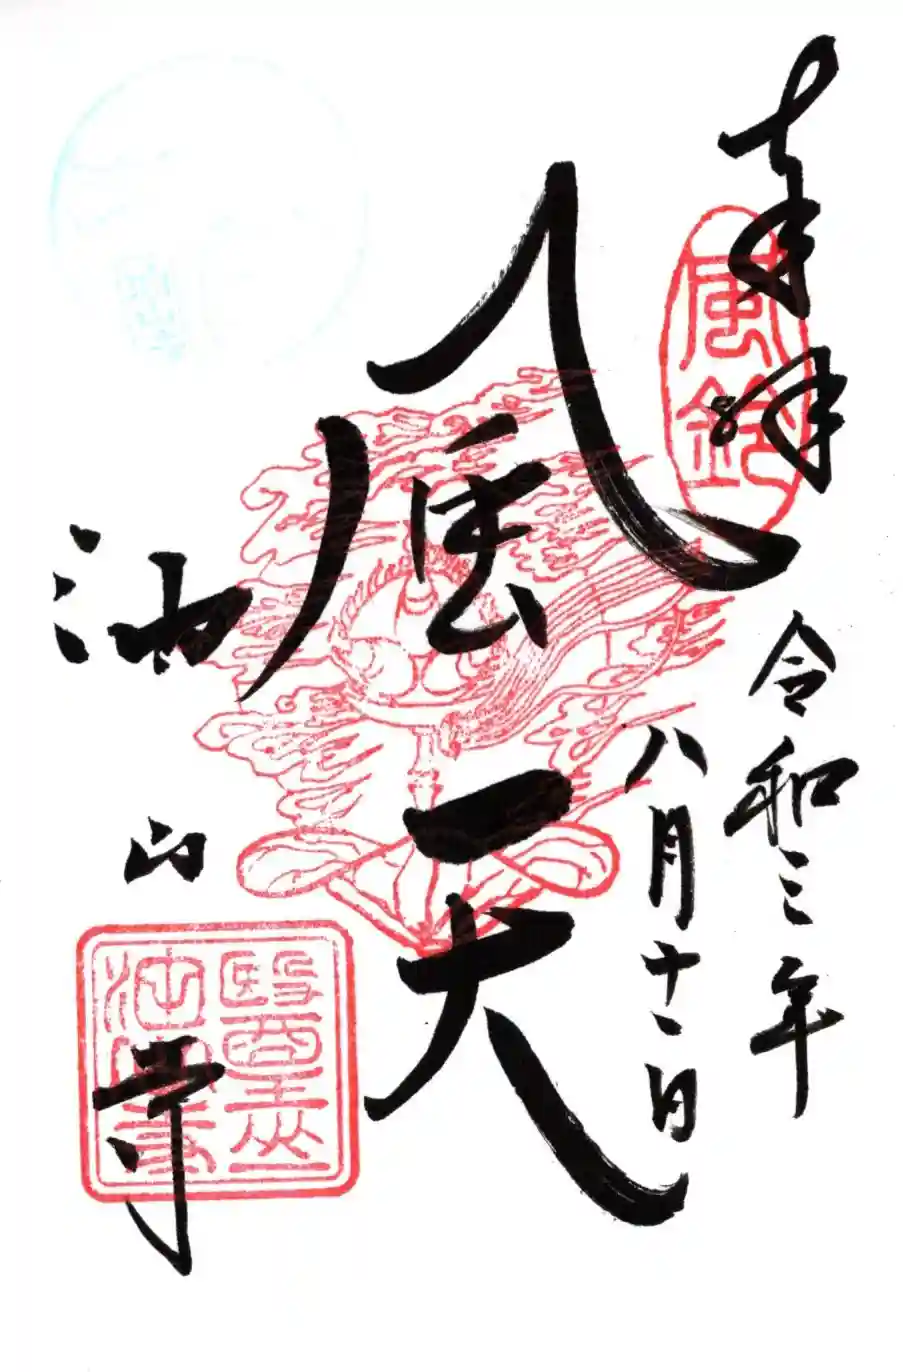 奉拝
風鈴
令和三年
八月十一日
風天
池山寺
醫王山